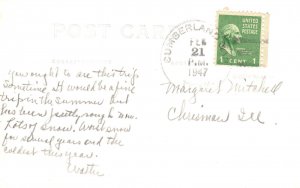 POST CARD
CUMBERLAND
FEB
21
P.M.
1947
UNITED STATES
POSTAGE
1 CENT 1
You ought to see this trip
sometime. It would be a fine
trip in the summer and
has been just rough now.
Lots of snow. Worst snow
for several years and the
coldest this year.
Walter
Margaret Mitchell
Chrisman Ill.